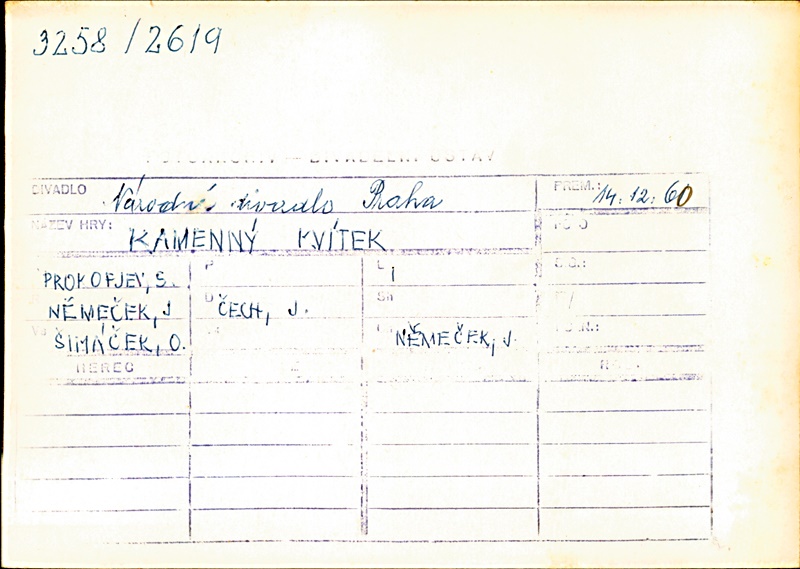 3258/2619
DIVADLO Národní divadlo Praha PREM.: 14.12.60
NÁZEV HRY: KAMENNÝ KVÍTEK
PROKOFJEV, S.
NĚMEČEK, J ČECH, J.
ŠIMÁČEK, O. NĚMEČEK, J.
HEREC